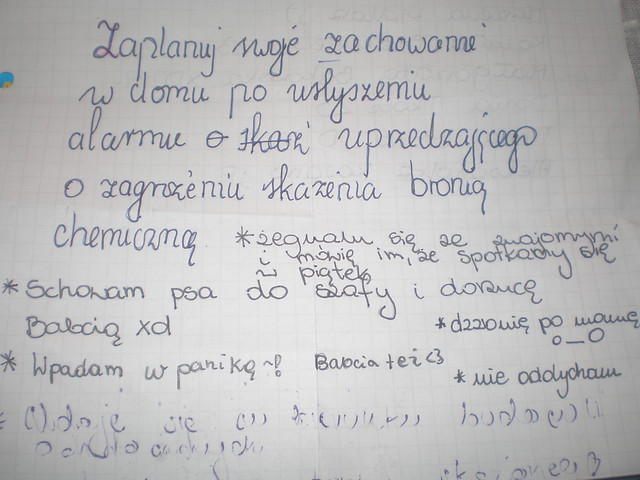 Zaplanuj swoje zachowanie
w domu po usłyszeniu
alarmu o skaż uprzedzającego
o zagrożeniu skażenia bronią
chemiczną
* żegnam się ze znajomymi
i mówię im, że spotkamy się
w piątek
* Schowam psa do szafy i dorzucę
Babcią xd
* dzwonię po mamę
o_O
* Wpadam w panikę ~!
Babcia też <3
* nie oddycham
się